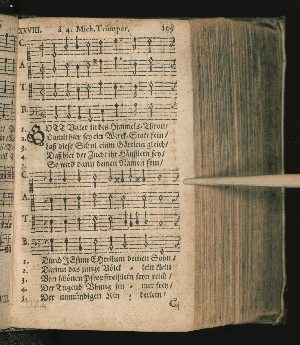 XXVIII. à 4. Mich. Trümper. 105
C.
A.
T.
B.
1. GOTT Vater in des Himmels-Thron/
2. Damit hier sey ein Werck-Statt fein/
3. Laß diese Schul einm Gärtlein gleich/
4. Daß hier der Zucht ihr Häußlein sey/
5. Es wird dann deinen Namen fein/
C.
A.
T.
B.
1. Durch JEsum CHristum deinen Sohn/
2. Darinn das junge Völck - lein klein
3. Von schönen Pfropfreißlein seyn reich/
4. Der Tugend Übung im - mer frey/
5. Der unmündigen Kin - derlein/